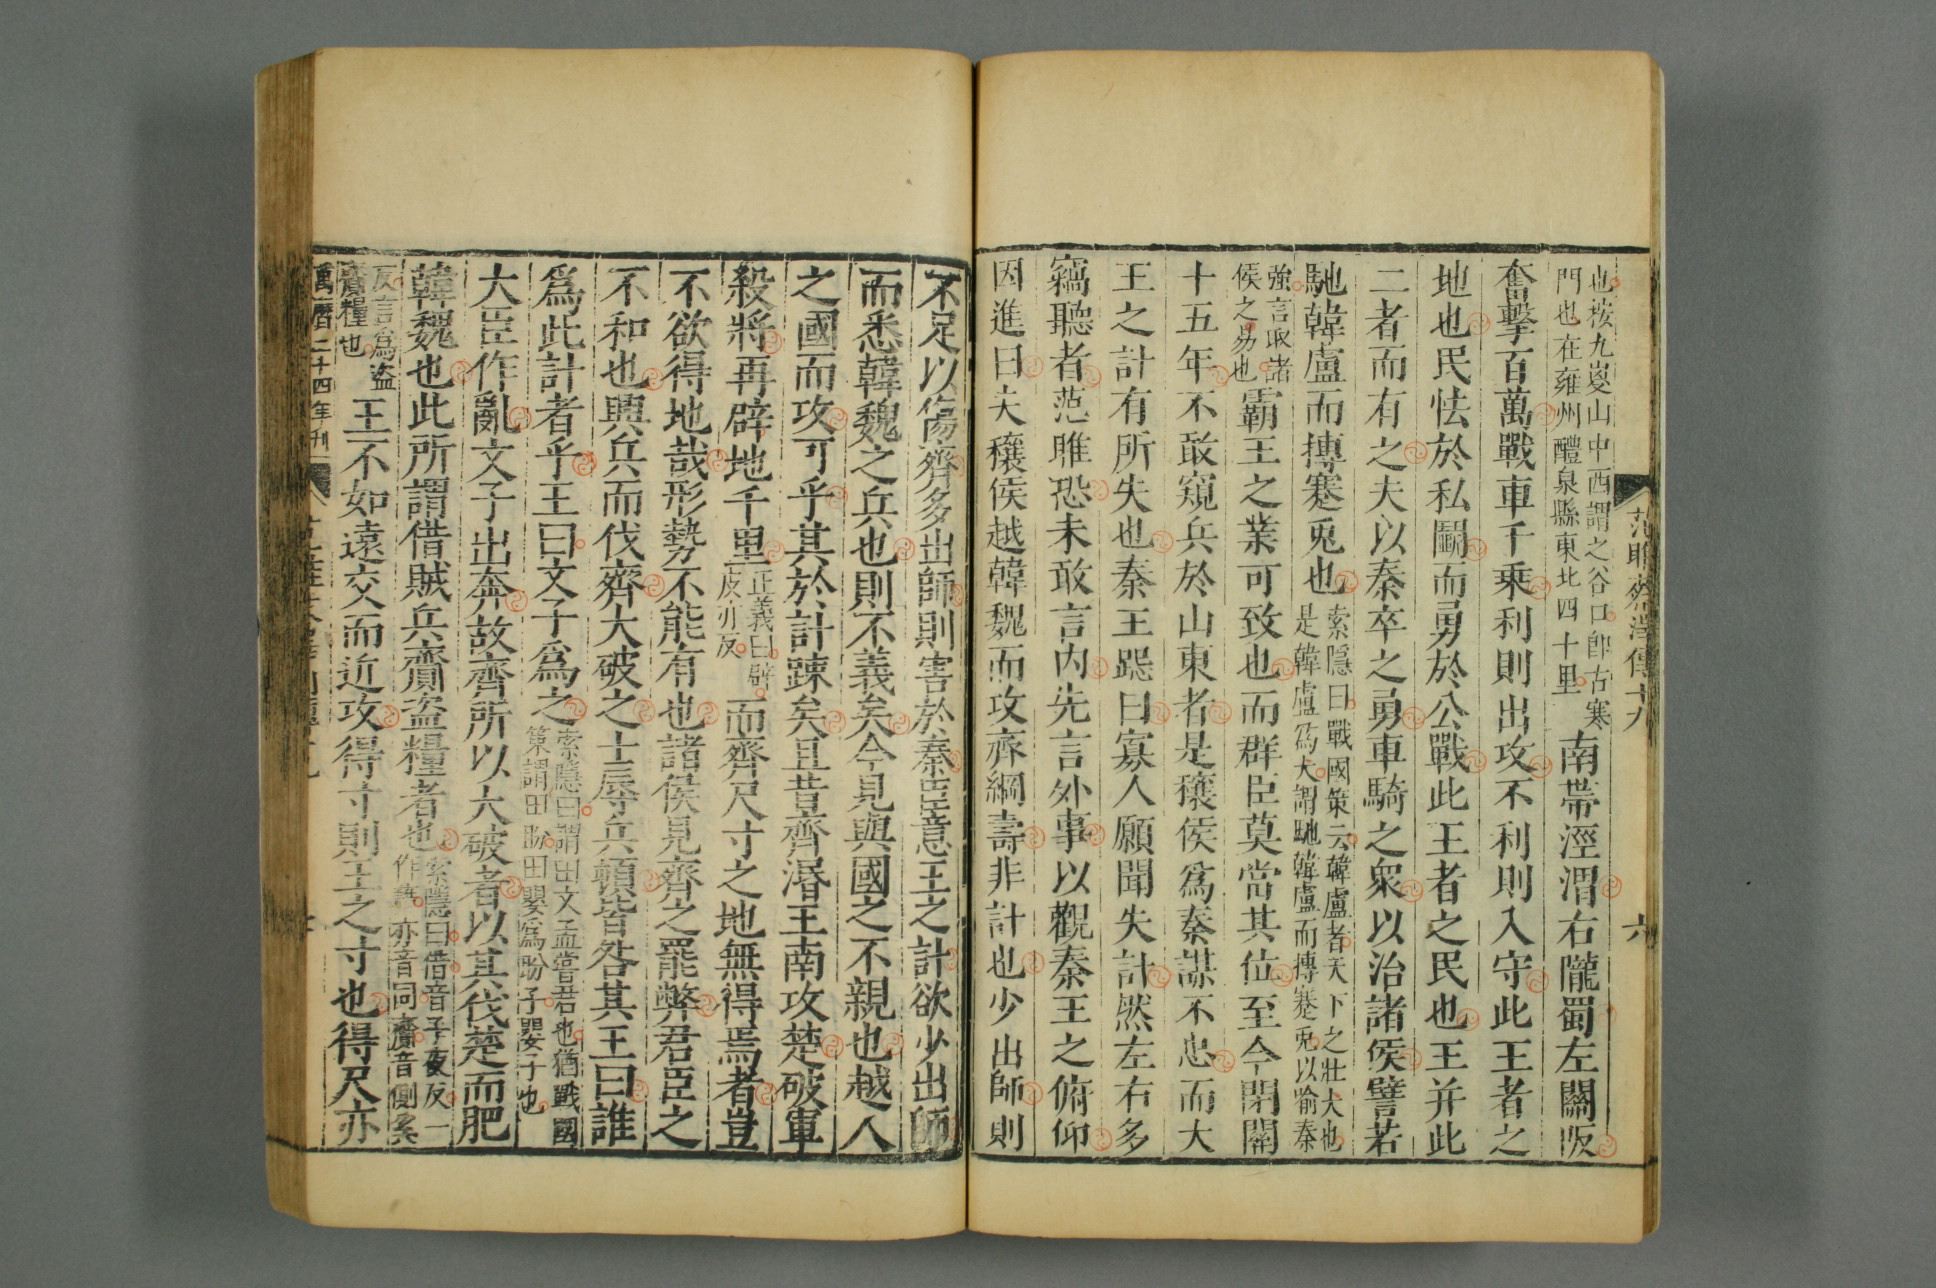 范睢蔡澤傳十九
六
也按九嵏山中西謂之谷口即古寒
門也在雍州醴泉縣東北四十里
南帶涇渭右隴蜀左關阪
奮擊百萬戰車千乘利則出攻不利則入守此王者之
地也民怯於私鬭而勇於公戰此王者之民也王并此
二者而有之夫以秦卒之勇車騎之衆以治諸侯譬若
馳韓盧而搏蹇兎也
索隱曰戰國策云韓盧者天下之壯犬也
是韓盧爲犬謂馳韓盧而搏蹇兎以喻秦
強言取諸
侯之易也
霸王之業可致也而群臣莫當其位至今閉關
十五年不敢窺兵於山東者是穰侯爲秦謀不忠而大
王之計有所失也秦王跽曰寡人願聞失計然左右多
竊聽者范睢恐未敢言内先言外事以觀秦王之俯仰
因進曰夫穰侯越韓魏而攻齊綱壽非計也少出師則
不足以傷齊多出師則害於秦臣意王之計欲少出師
而悉韓魏之兵也則不義矣今見與國之不親也越人
之國而攻可乎其於計踈矣且昔齊湣王南攻楚破軍
殺將再辟地千里
正義曰辟
皮亦反
而齊尺寸之地無得焉者豈
不欲得地哉形勢不能有也諸侯見齊之罷弊君臣之
不和也興兵而伐齊大破之士辱兵頓皆咎其王曰誰
爲此計者乎王曰文子爲之
索隱曰謂田文孟嘗君也猶戰國
策謂田盼田嬰爲盼子嬰子也
大臣作亂文子出奔故齊所以大破者以其伐楚而肥
韓魏也此所謂借賊兵齎盜糧者也
索隱曰借音子夜反一
作藉亦音同齎音側奚
反言爲盜
齎糧也
王不如遠交而近攻得寸則王之寸也得尺亦
萬曆二十四年刊